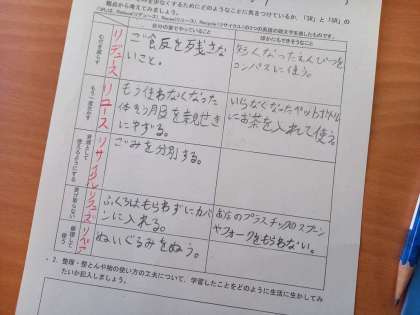 を少なくするためにどのようなことに気をつけているか、「3R」と「5R」の
観点から考えてみましょう。
自分の家でやっていること
ほかにもできそうなこと
ごみを減らす
リデュース
ご食反を残さな
いこと。
短くなったえんぴつを
コンパスに使う。
もう一度使う
リユース
もう使わなくなった
体そう月日を親せき
にゆずる。
いらなくなったペットボトル
にお茶を入れて使う。
資源として
使えるようにする
リサイクル
ごみを分別する。
受け取らない
リフューズ
ふくろはもらわずにカバ
ンに入れる。
お店のプラスチックのスプーン
やフォークをもらわない。
修理して
使う
リペア
ぬいぐるみをぬう。
2. 整理・整とんや物の使い方の工夫について、学習したことをどのように生活に生かしてみ
たいか記入しましょう。